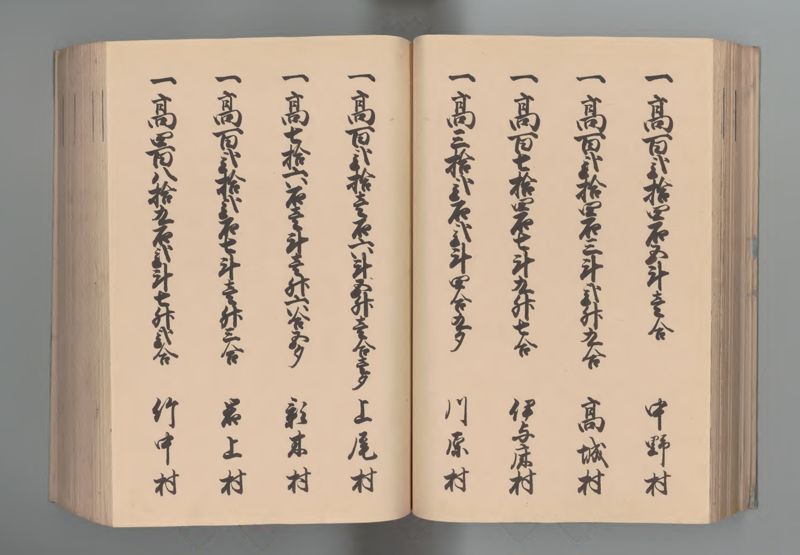 一高百弐拾四石五斗壱合 中野村
一高百弐拾四石三斗弐升九合 高城村
一高百七拾四石七斗九升七合 伊与床村
一高三拾弐石弐斗四合九夕 川原村
一高百弐拾壱石六斗五升壱合壱夕 上尾村
一高七拾六石壱斗壱升六合五夕 村
一高百弐拾弐石七斗壱升三合 岩上村
一高四百八拾九石弐斗七升弐合 竹中村